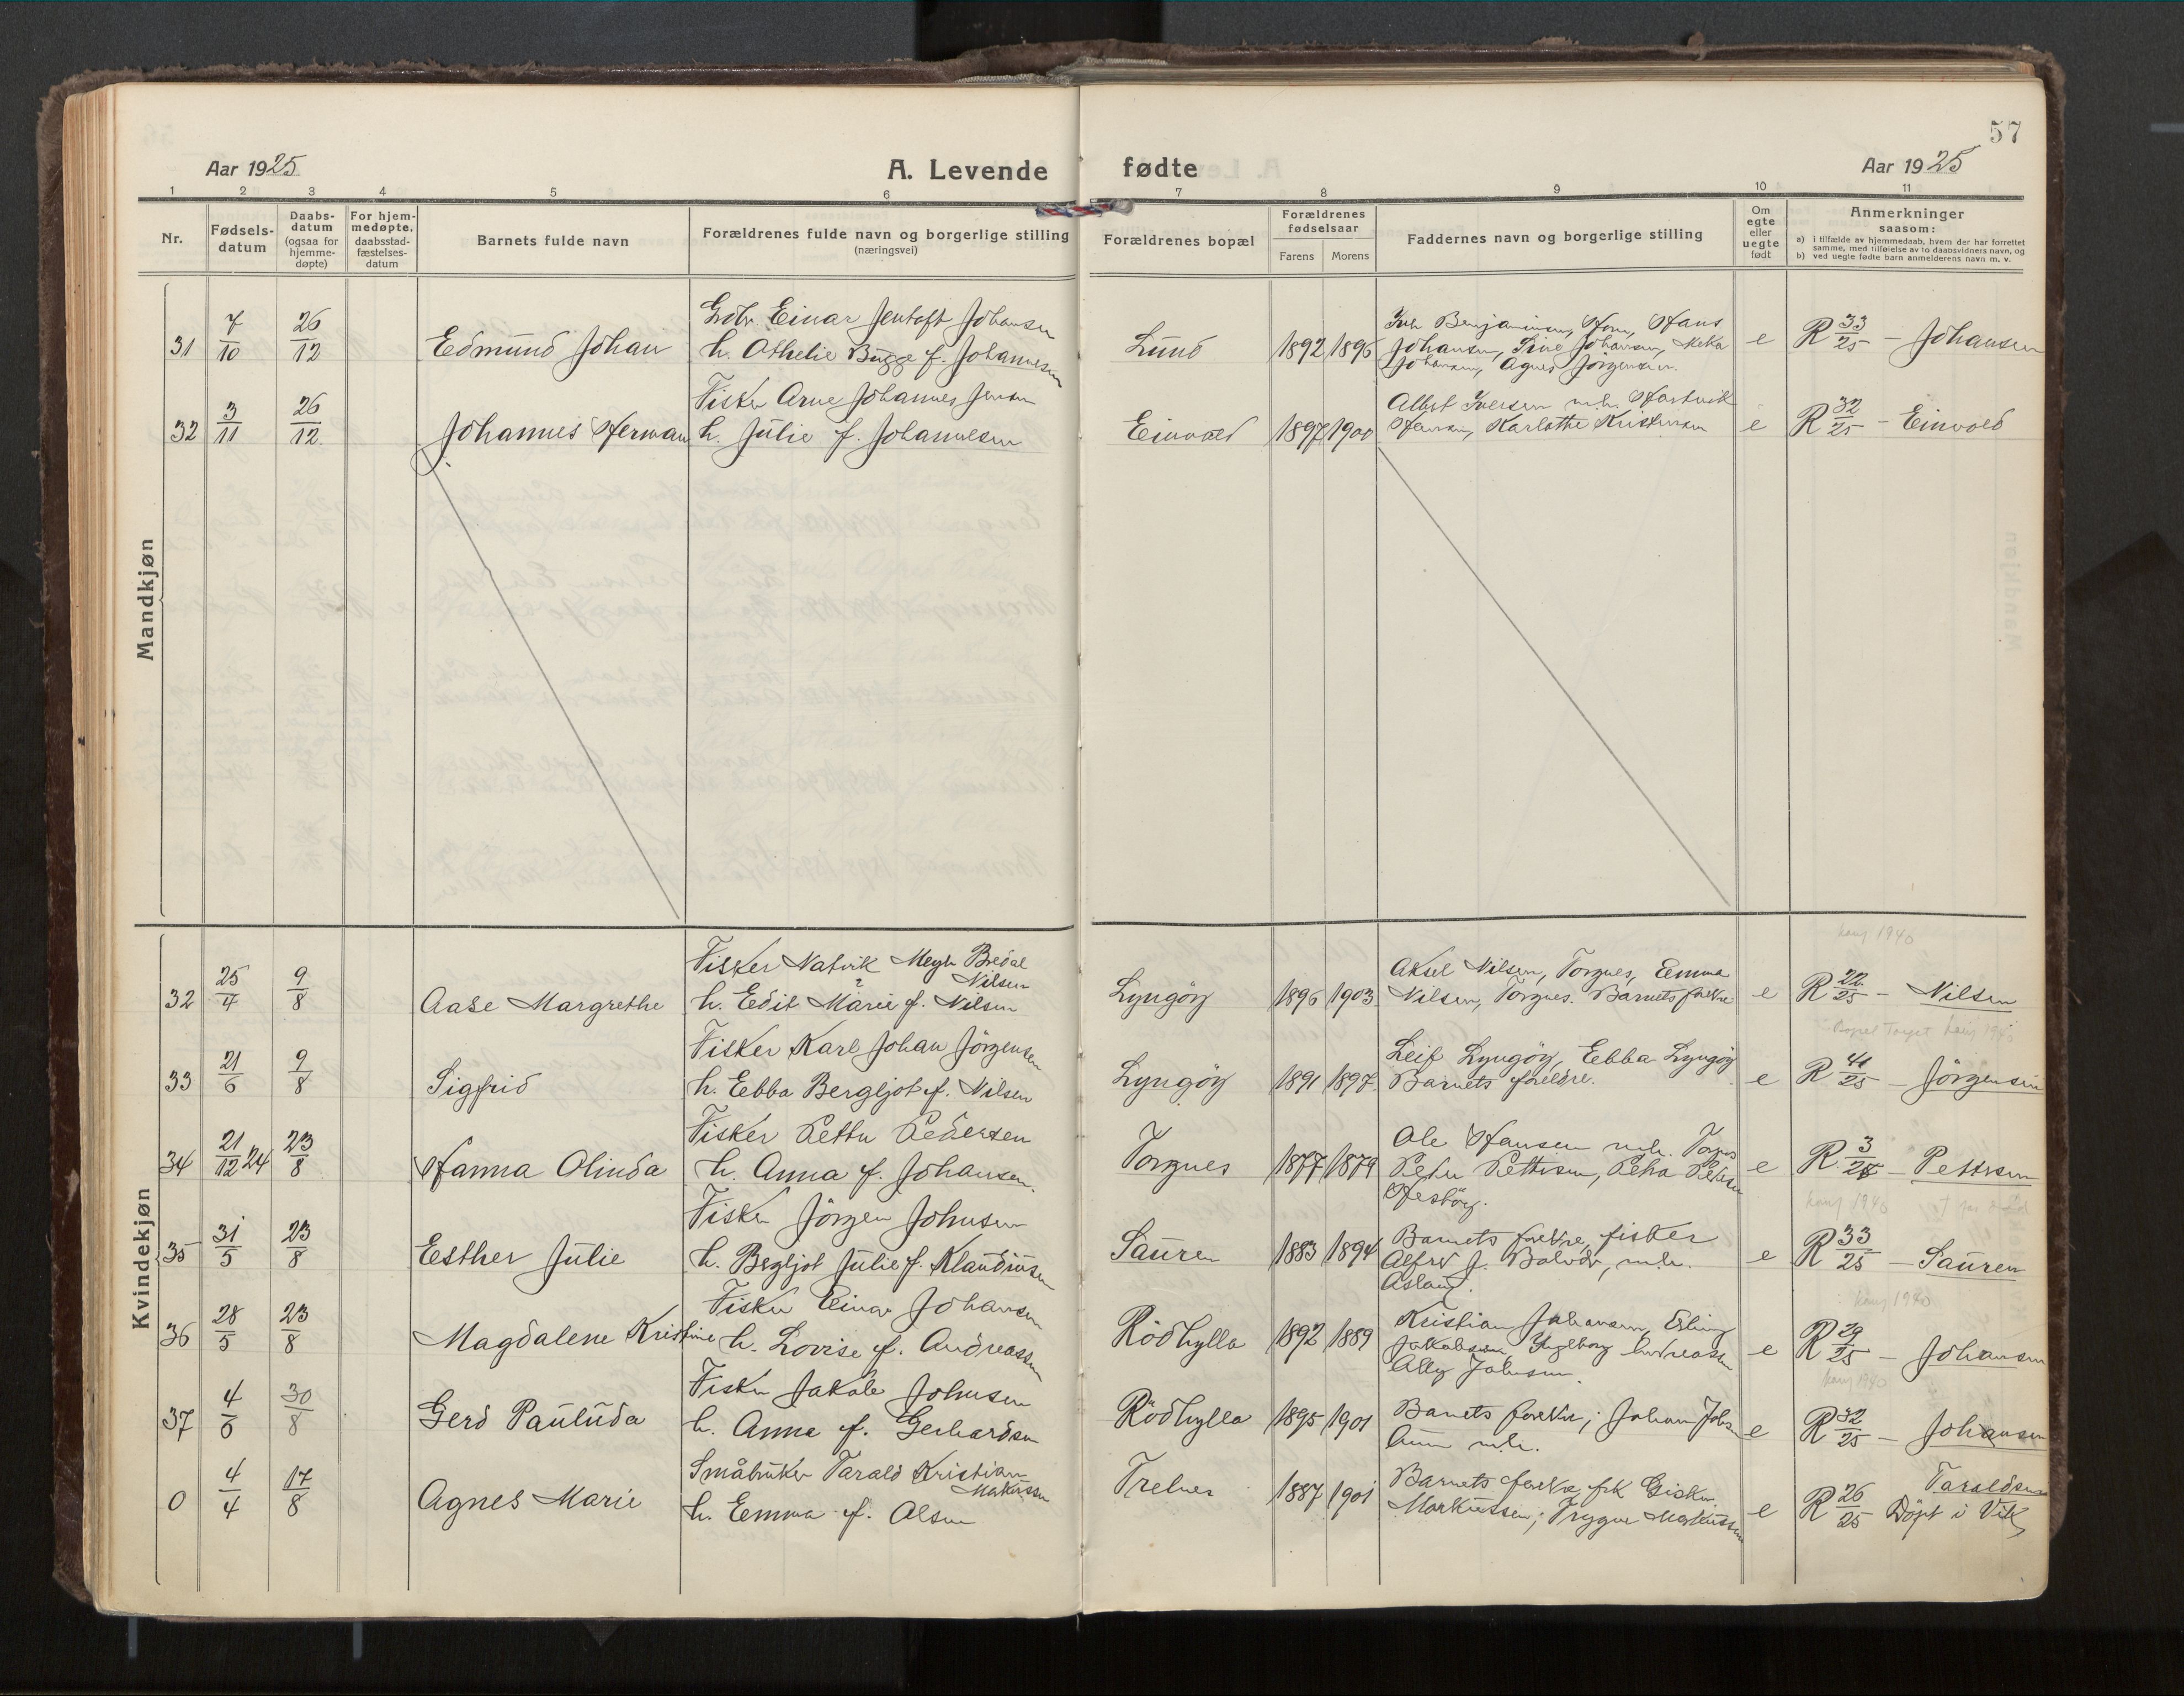 57
Aar 1925
A. Levende fødte
Aar 1925
1 2 3 4 5 6 7 8 9 10 11
Nr.
Fødsels-
datum
Daabs-
datum
(ogsaa for
hjemme-
døpte)
For hjem-
medøpte,
daabsstad-
fæstelses-
datum
Barnets fulde navn
Forældrenes fulde navn og borgerlige stilling
(næringsvei)
Forældrenes bopæl
Forældrenes
fødselsaar
Farens Morens
Faddernes navn og borgerlige stilling
Om
egte
eller
uegte
født
Anmerkninger
saasom:
a) i tilfælde av hjemmedaab, hvem der har forrettet
samme, med tilføielse av to daabsvidners navn, og
b) ved uegte fødte barn anmelderens navn m. v.
Mandkjøn
31 7/10 26/12 Edmund Johan
Gdbr. Einar Jentoft Johansen
h. Othelie Bugge f. Johannesen
Lund 1892 1896
Benjaminsen, Horn, Hans
Johansen, Tine Johansen, Meka
Johansen, Agnes Jörgensen.
e R 33/25 - Johansen
32 3/11 26/12 Johannes Herman
Fisker Arne Johannes Jensen
h. Julie f. Johannesen
Einvold 1897 1900
Albert Iversen m.h. Hartvik
Hansen, Karlotthe Kristensen
e R 32/25 - Einvold
Kvindekjøn
konf 1940
32 25/4 9/8 Aase Margrethe
Fisker Natvik Meyh Bredal
Nilsen
h. Edit Marie f. Nilsen
Lyngöy 1896 1903
Aksel Nilsen, Torgnes, Emma
Nilsen, Torgnes. Barnets foreldre
e R 22/25 - Nilsen
33 21/6 9/8 Sigfrid
Fisker Karl Johan Jörgensen
h. Ebba Bergljot f. Nilsen
Lyngöy 1891 1897
Leif Lyngöy, Ebba Lyngöy
Barnets foreldre.
e R 41/25 - Jörgensen
34 21/12 24 23/8 Hanna Olinda
Fisker Petter Pedersen
h. Anna f. Johansen.
Torgnes 1877 1879
Ole Hansen m.h. Torgnes
Peder Pettersen, Petra Petersen
Hestöy.
e R 3/25 - Pettersen
konf 1940
35 31/5 23/8 Esther Julie
Fisker Jörgen Johnsen
h. Bergljot Julie f. Klaudiusen
Sauren 1883 1894
Barnets foreldre, fisker
Alfred J. Bolvär, m.h.
Aslaug.
e R 33/25 - Sauren
konf 1940
36 28/5 23/8 Magdalene Kristine
Fisker Einar Johansen
h. Lovise f. Andreassen
Rödhylla 1892 1889
Kristian Johansen, Erling
Jakobsen Ingeborg Andreassen
Ally Johnsen.
e R 29/25 - Johansen
konf 1940
37 4/6 30/8 Gerd Pauluda
Fisker Jakob Johnsen
h. Anna f. Gerhardsen
Rödhylla 1895 1901
Barnets foreldre; Johan Johs
m.h.
e R 32/25 - Johansen
0 4/4 17/8 Agnes Marie
Småbruker Tarald Kristian
Markussen
h. Emma f. Olsen
Trelnes 1887 1901
Barnets foreldre, frk
Markussen; Trygve Markussen
e R 26/25 Taraldsen
Döpt i Vik